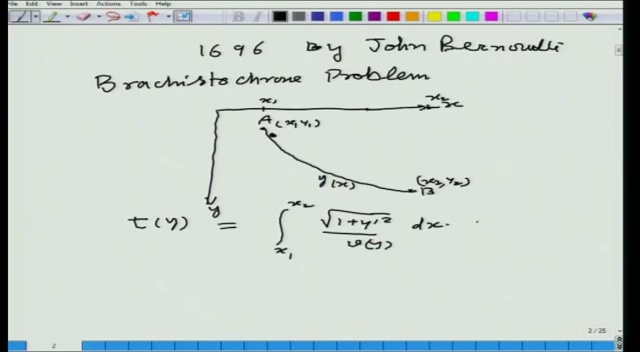 Edit View Insert Actions Tools Help
1696 By John Bernoulli
Brachistochrone Problem
x₁ x₂ x
A(x₁,y₁)
y(x) (x₂,y₂)
B
y
t(y) = ∫ₓ₁ˣ² √(1+y'²)/v(y) dx.
2 / 25
2